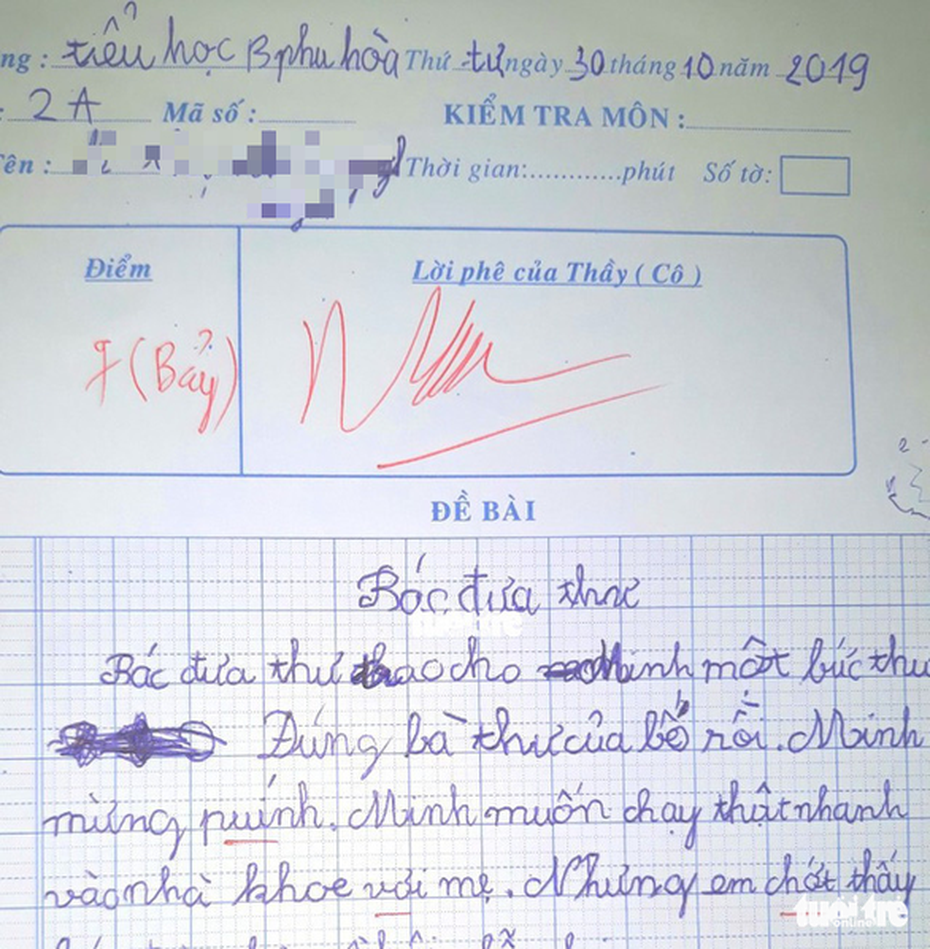 ng : tiểu học B phu hòa Thứ tư ngày 30 tháng 10 năm 2019
: 2A Mã số : KIỂM TRA MÔN :
Tên : Thời gian:............phút Số tờ:
Điểm Lời phê của Thầy ( Cô )
7 (Bảy)
ĐỀ BÀI
Bác đưa thư
tuổi trẻ
Bác đưa thư trao cho Minh một bức thư
Đúng là thư của bố rồi. Minh
mừng puính. Minh muốn chạy thật nhanh
vào nhà khoe với mẹ. Nhưng em chót thấy
tuổi trẻ online